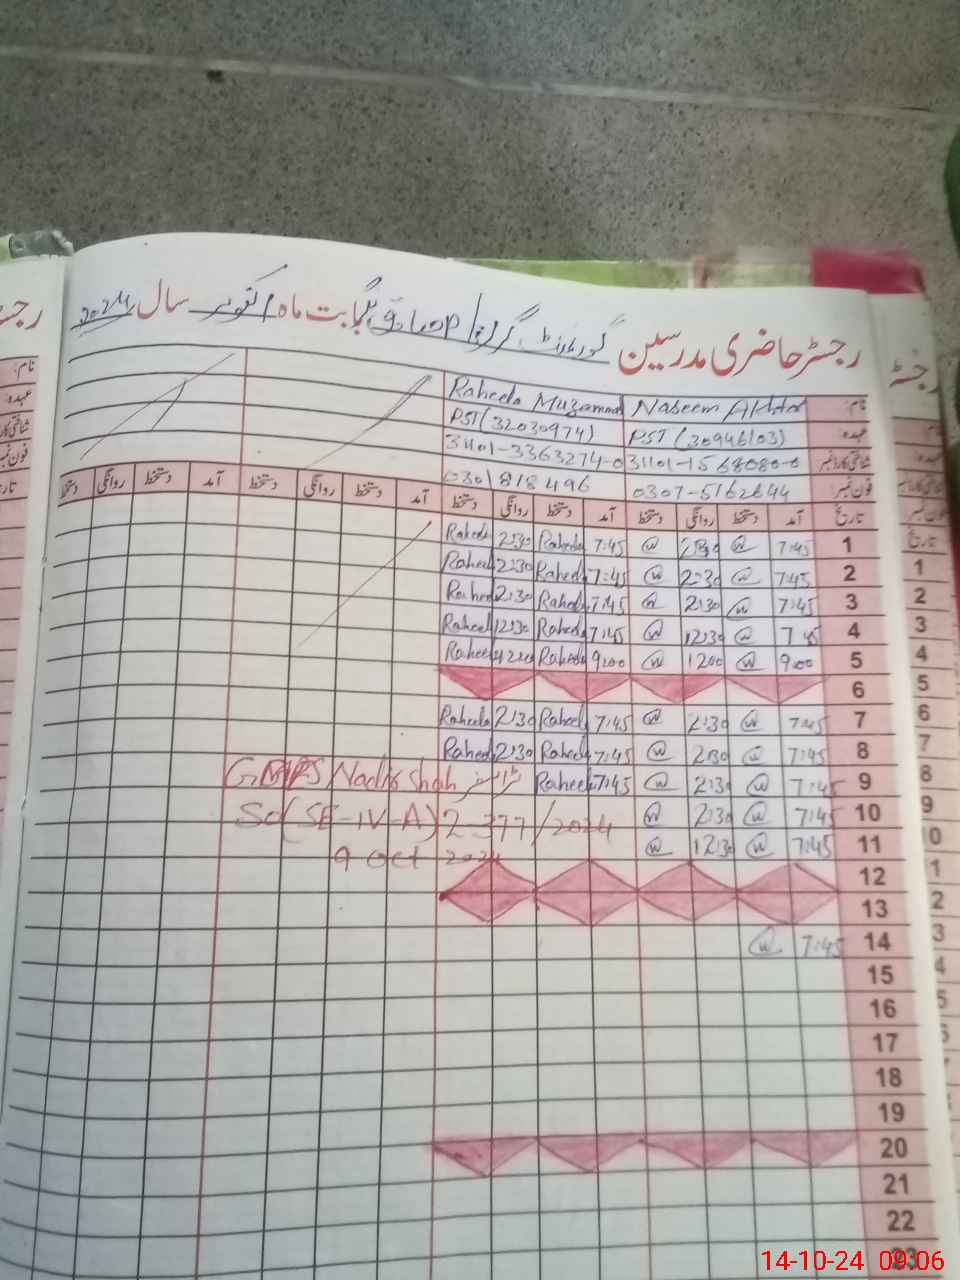 رجسٹر حاضری مدرسین گورنمنٹ گرلز بابت ماہ اکتوبر سال 2024
نام: Naseem Akhtar Raheela Muzammal
عہدہ: PST (30946103) PST (32030974)
شناختی کارڈ نمبر 31101-1568080-0 31101-3363274-0
فون نمبر 0307-5162644 0301 818496
تاریخ آمد دستخط روانگی دستخط آمد دستخط روانگی دستخط آمد دستخط روانگی دستخط آمد دستخط روانگی دستخط
1 7:45 @ 2:30 @ 7:45 Raheela 2:30 Raheela
2 7:45 @ 2:30 @ 7:45 Raheela 2:30 Raheela
3 7:45 @ 2:30 @ 7:45 Raheela 2:30 Raheela
4 7:45 @ 12:30 @ 7:45 Raheela 12:30 Raheela
5 9:00 @ 1200 @ 9:00 Raheela 1200 Raheela
6
7 7:45 @ 2:30 @ 7:45 Raheela 2:30 Raheela
8 7:45 @ 2:30 @ 7:45 Raheela 2:30 Raheela
9 7:45 @ 2:30 @ 7:45 Raheela ٹرانسفر Nadir Shah
10 7:45 @ 2:30 @ So(SE-IV-A)2-377/2024
11 7:45 @ 12:30 @ 9 Oct 2024
12
13
14 7:45 @
15
16
17
18
19
20
21
22
23
رجسٹ
نام:
عہدہ:
شناختی کارڈ
فون نمبر
تاریخ
1
2
3
4
5
6
7
8
9
10
14-10-24 09:06